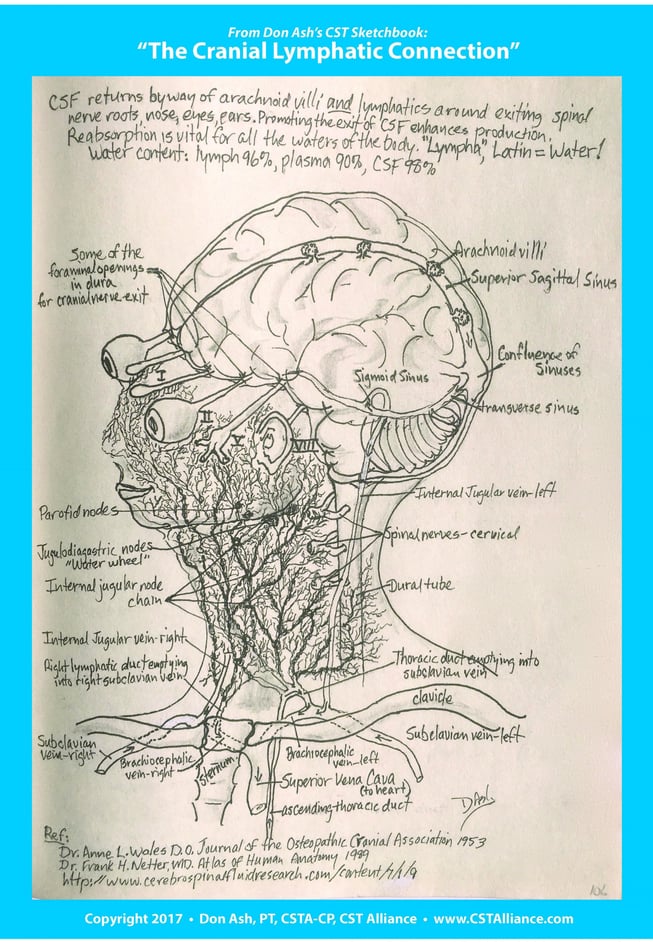 From Don Ash's CST Sketchbook:
"The Cranial Lymphatic Connection"
CSF returns by way of arachnoid villi and lymphatics around exiting spinal
nerve roots, nose, eyes, ears. Promoting the exit of CSF enhances production.
Reabsorption is vital for all the waters of the body. "Lympha", Latin = Water!
Water content: lymph 96%, plasma 90%, CSF 98%
Some of the
foraminal openings
in dura
for cranial nerve exit
Arachnoid villi
Superior Sagittal Sinus
Confluence of
Sinuses
Sigmoid Sinus
transverse sinus
I
II
V
VIII
Internal Jugular vein-left
Parotid nodes
Spinal nerves-cervical
Jugulodiagastric nodes
"Water wheel"
Internal jugular node
chain
Dural tube
Internal Jugular vein-right
Right lymphatic duct emptying
into right subclavian vein
Thoracic duct emptying into
subclavian vein
clavicle
Subclavian
vein-right
Subclavian vein-left
Brachiocephalic
vein-right
Sternum
Brachiocephalic
vein-left
Superior Vena Cava
(to heart)
ascending thoracic duct
DAsh
Ref:
Dr. Anne L. Wales D.O. Journal of the Osteopathic Cranial Association 1953
Dr. Frank H. Netter, MD. Atlas of Human Anatomy 1989
http://www.cerebrospinalfluidresearch.com/content/
106
Copyright 2017 • Don Ash, PT, CSTA-CP, CST Alliance • www.CSTAlliance.com